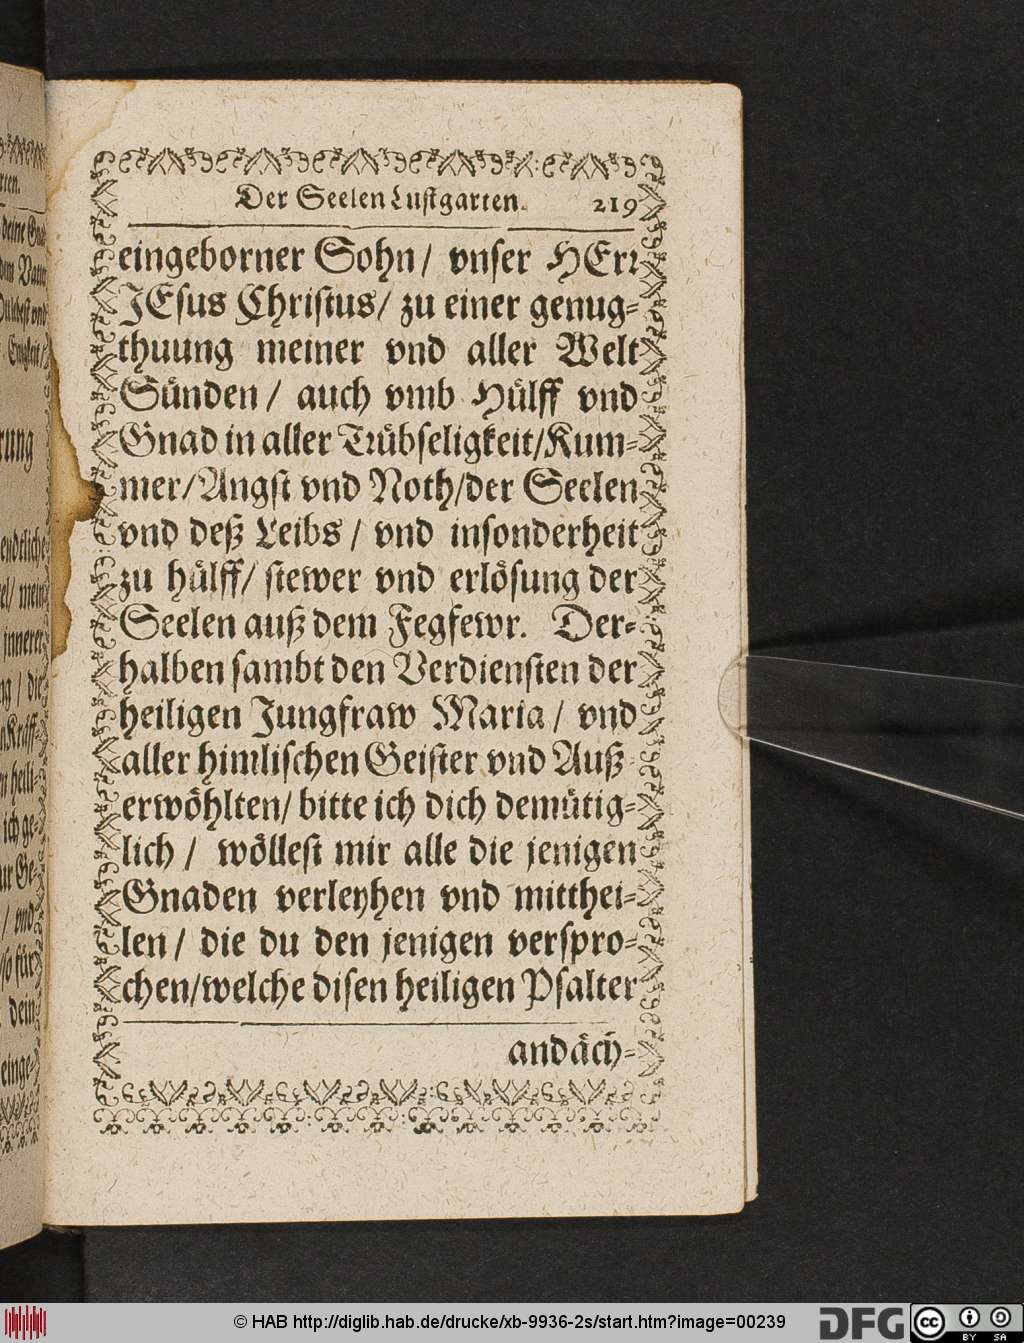 Der Seelen Lustgarten. 219
eingeborner Sohn / vnser HErr
JEsus Christus / zu einer genug-
thuung meiner vnd aller Welt
Sünden / auch vmb Hülff vnd
Gnad in aller Trübseligkeit / Kum-
mer / Angst vnd Noth / der Seelen
vnd deß Leibs / vnd insonderheit
zu hülff / stewer vnd erlösung der
Seelen auß dem Fegfewr. Der-
halben sambt den Verdiensten der
heiligen Jungfraw Maria / vnd
aller himlischen Geister vnd Auß-
erwöhlten / bitte ich dich demütig-
lich / wöllest mir alle die jenigen
Gnaden verleyhen vnd mitthei-
len / die du den jenigen verspro-
chen / welche disen heiligen Psalter
andäch-
© HAB http://diglib.hab.de/drucke/xb-9936-2s/start.htm?image=00239
DFG
cc
BY SA